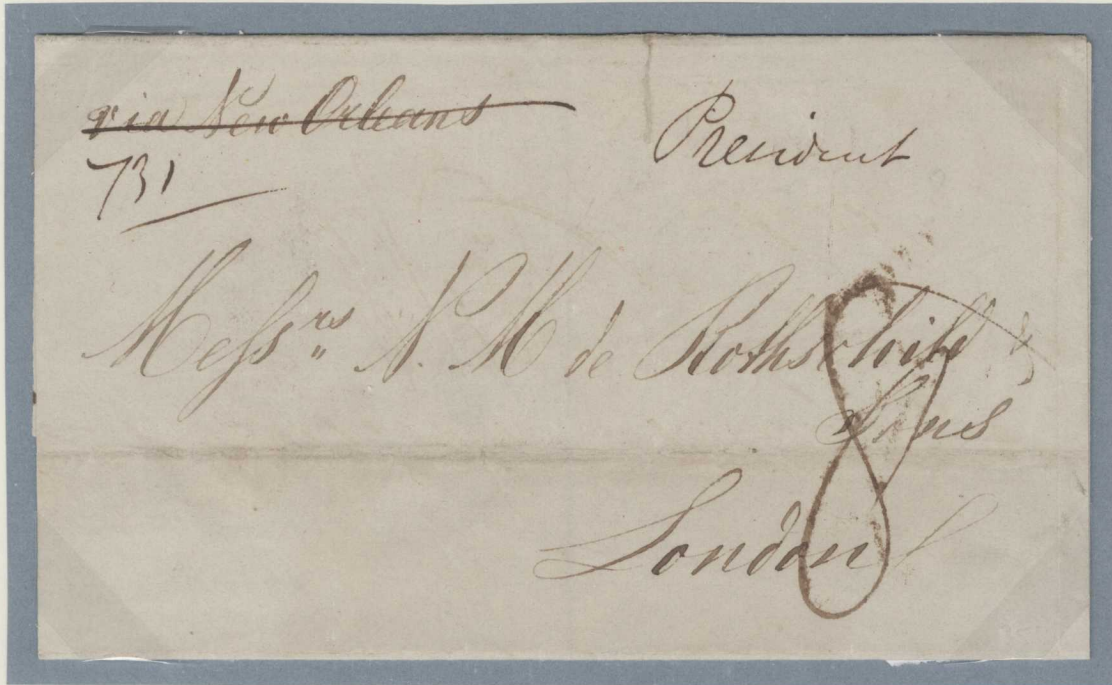 via New Orleans
President
731
Messrs N. M de Rothschild &
Sons
London
8